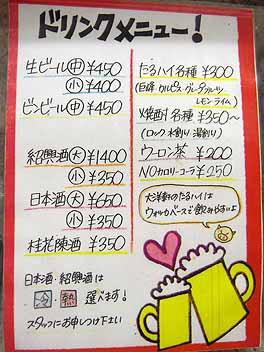 ドリンクメニュー！
生ビール(中) ¥450
(小) ¥400
ビンビール(中) ¥450
紹興酒(大) ¥1400
(小) ¥350
日本酒(大) ¥650
(小) ¥350
桂花陳酒 ¥350
日本酒・紹興酒は
冷 熱 選べます！
スタッフにお申しつけ下さい
たるハイ各種 ¥300
(巨峰 カルピス グレープフルーツ
レモン ライム)
焼酎各種 ¥350～
(ロック 水割り 湯割り)
ウーロン茶 ¥200
NOカロリーコーラ ¥250
大洋軒のたるハイは
ウォッカベースで飲みやすいよ